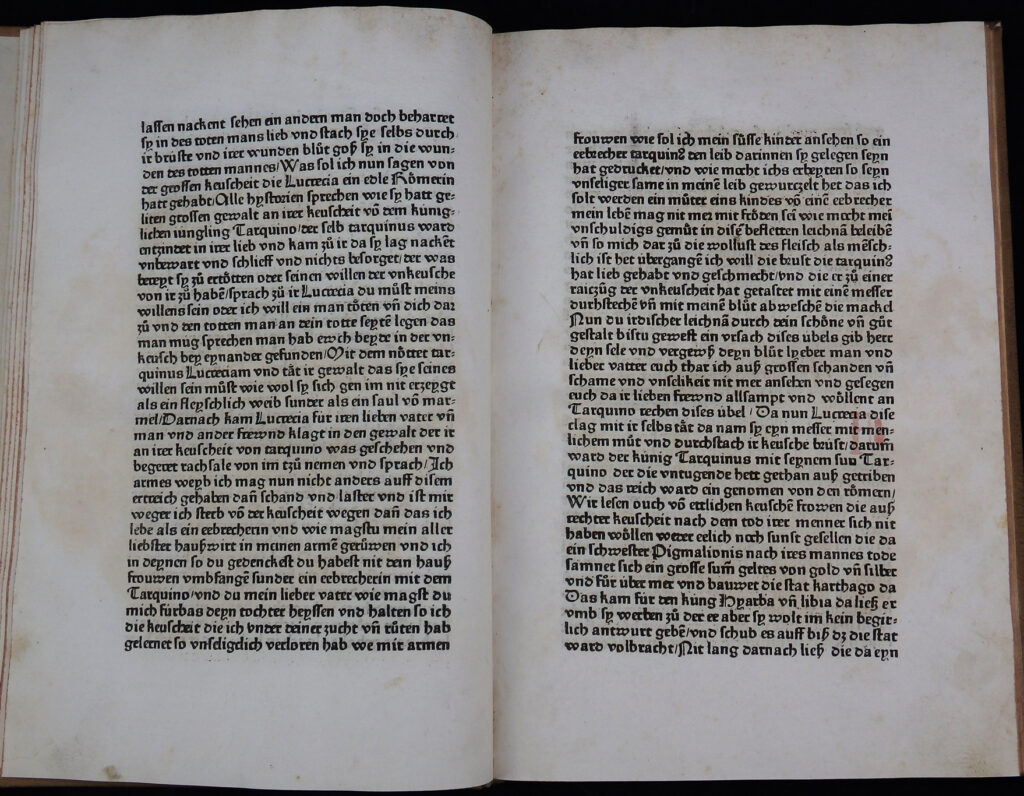 lassen nackent sehen ein andern man doch beharret
sy in des toten mans lieb vnd stach sye selbs durch
ir brüste vnd irer wunden blůt goß sy in die wun⸗
den des totten mannes/Was sol ich nun sagen von
der grossen keuscheit die Lucrecia ein edle Römerin
hatt gehabt/Alle hystorien sprechen wie sy hatt ge⸗
liten grossen gewalt an irer keuscheit võ dem künig⸗
lichen iüngling Tarquino/der selb tarquinus ward
entzindet in irer lieb vnd kam zů ir da sy lag nackẽt
vnbewart vnd schlieff vnd nichts besorget/der was
bereyt sy zů ertötten oder seinen willen der vnkeusche
von ir zů habẽ/sprach zů ir Lucrecia du můst meins
willens sein oder ich will ein man töten vñ dich dar
zů vnd den totten man an dein totte seytẽ legen das
man müg sprechen man hab ewch beyde in der vn⸗
keusch bey eynander gefunden/Mit dem nöttet tar⸗
quinus Lucreciam vnd tåt ir gewalt das sye seines
willen sein můst wie wol sy sich gen im nit erzeygt
als ein fleyschlich weib sunder als ein saul võ mar⸗
mel/Darnach kam Lucrecia für iren lieben vater vñ
man vnd ander frewnd klagt in den gewalt der ir
an irer keuscheit von tarquino was geschehen vnd
begeret rachsale von im tzů nemen vnd sprach/Ich
armes weyb ich mag nun nicht anders auff disem
ertreich gehaben dañ schand vnd laster vnd ist mir
weger ich sterb võ der keuscheit wegen dañ das ich
lebe als ein eebrecherin vnd wie magstu mein aller
liebster haußwirt in meinen armẽ gerůwen vnd ich
in deynen so du gedenckest du habest nit dein hauß
frouwen vmbfangẽ sunder ein eebrecherin mit dem
Tarquino/vnd du mein lieber vater wie magst du
mich fürbas deyn tochter heyssen vnd halten so ich
die keuscheit die ich vnder deiner zucht vñ růten hab
gelernet so vnseligclich verloren hab we mir armen
frouwen wie sol ich mein süsse kinder ansehen so ein
eebrecher tarquinꝰ den leib darinnen sy gelegen seyn
hat gedrucket/vnd wie mœcht ichs erbeyten so seyn
vnseliger same in meinẽ leib gewurczelt het das ich
solt werden ein můter eins kindes võ einẽ eebrecher
mein lebẽ mag nit mer mit fröden sei wie mœcht mei
vnschuldigs gemůt in disẽ befletten leichnã beleibẽ
vñ so mich dar zů die wollust des fleisch als mẽsch⸗
lich ist het übergangẽ ich will die brust die tarquinꝰ
hat lieb gehabt vnd geschmecht/vnd die er zů einer
raiczüg der vnkeuscheit hat getastet mit einẽ messer
durchstechẽ vñ mit meinẽ blůt abweschẽ die mackel
Nun du irdischer leichnã durch dein schöne vñ gůt
gestalt bistu gewest ein vrsach dises übels gib herr
deyn sele vnd vergewß deyn blůt lyeber man vnd
lieber vatter euch thar ich auß grossen schanden vñ
schame vnd vnselikeit nit mer ansehen vnd gesegen
euch da ir lieben frewnd allsampt vnd wöllent an
Tarquino rechen dises übel/Da nun Lucrecia dise
clag mit ir selbs tåt da nam sy eyn messer mit men⸗
lichem můt vnd durchstach ir keusche brüst/darum̃
ward der künig Tarquinus mit seynem sun Tar⸗
quino der die vntugende hett gethan auß getriben
vnd das reich ward ein genomen von den römern/
Wir lesen ouch võ ettlichen keuschẽ frowen die auß
rechter keuscheit nach dem tod irer menner sich nit
haben wöllen weder eelich noch sunst gesellen die da
ein schwester Pigmalionis nach ires mannes tode
samnet sich ein grosse sum̃ geltes von gold vñ silber
vnd für über mer vnd bauwet die stat karthago da
Das kam für den küng Hyarba vñ libia da ließ er
vmb sy werben zů der ee aber sy wolt im kein begir⸗
lich antwurt gebẽ/vnd schub es auff biß dz die stat
ward volbracht/Nit lang darnach ließ die da eyn